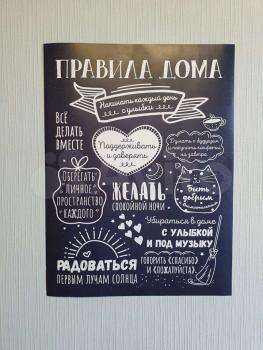 ПРАВИЛА ДОМА
Начинать каждый день
с улыбки
ВСЁ
ДЕЛАТЬ
ВМЕСТЕ
Поддерживать
и доверять
Думать о будущем
на завтра
ОБЕРЕГАТЬ
ЛИЧНОЕ
ПРОСТРАНСТВО
КАЖДОГО
ЖЕЛАТЬ
СПОКОЙНОЙ НОЧИ
Быть
добрым
Убираться в доме
С УЛЫБКОЙ
И ПОД МУЗЫКУ
РАДОВАТЬСЯ
ПЕРВЫМ ЛУЧАМ СОЛНЦА
ГОВОРИТЬ «СПАСИБО»
И «ПОЖАЛУЙСТА»